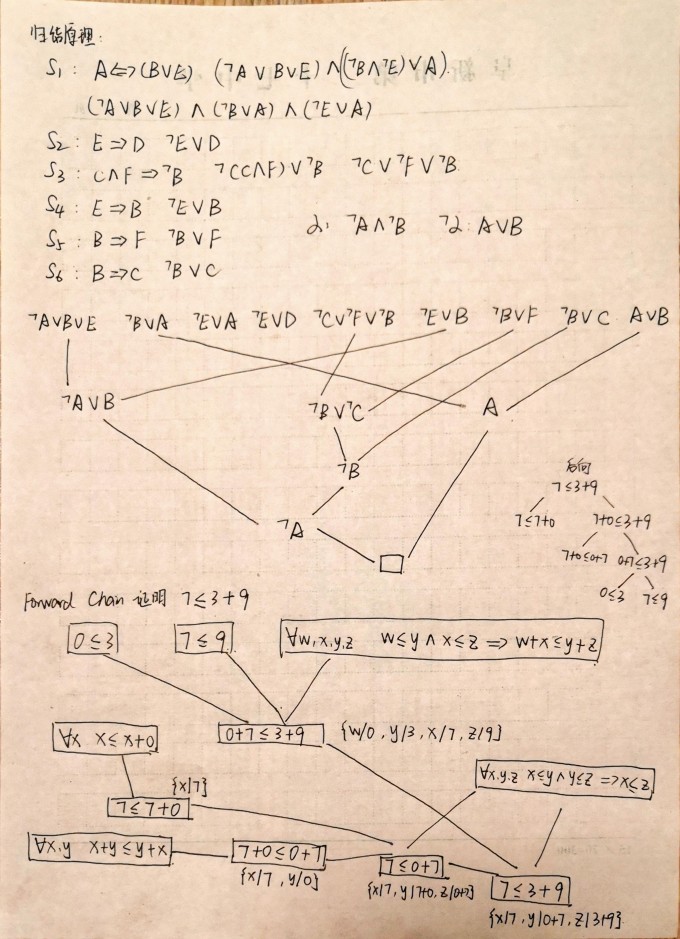 归结原理:
S1: A⇔(B∨E) (¬A∨B∨E)∧((¬B∧¬E)∨A).
(¬A∨B∨E)∧(¬B∨A)∧(¬E∨A)
S2: E⇒D ¬E∨D
S3: C∧F⇒¬B ¬(C∧F)∨¬B ¬C∨¬F∨¬B
S4: E⇒B ¬E∨B
S5: B⇒F ¬B∨F
α: ¬A∧¬B ¬α: A∨B
S6: B⇒C ¬B∨C
¬A∨B∨E ¬B∨A ¬E∨A ¬E∨D ¬C∨¬F∨¬B ¬E∨B ¬B∨F ¬B∨C A∨B
¬A∨B ¬B∨¬C A
¬B
¬A
后向
7≤3+9
7≤7+0 7+0≤3+9
7+0≤0+7 0+7≤3+9
0≤3 7≤9
Forward Chain 证明 7≤3+9
0≤3 7≤9 ∀w,x,y,z w≤y∧x≤z⇒w+x≤y+z
0+7≤3+9 {w/0, y/3, x/7, z/9}
∀x x≤x+0
{x/7}
7≤7+0
∀x,y,z x≤y∧y≤z⇒x≤z
∀x,y x+y≤y+x 7+0≤0+7 7≤0+7
{x/7, y/0} {x/7, y/7+0, z/0+7}
7≤3+9
{x/7, y/0+7, z/3+9}